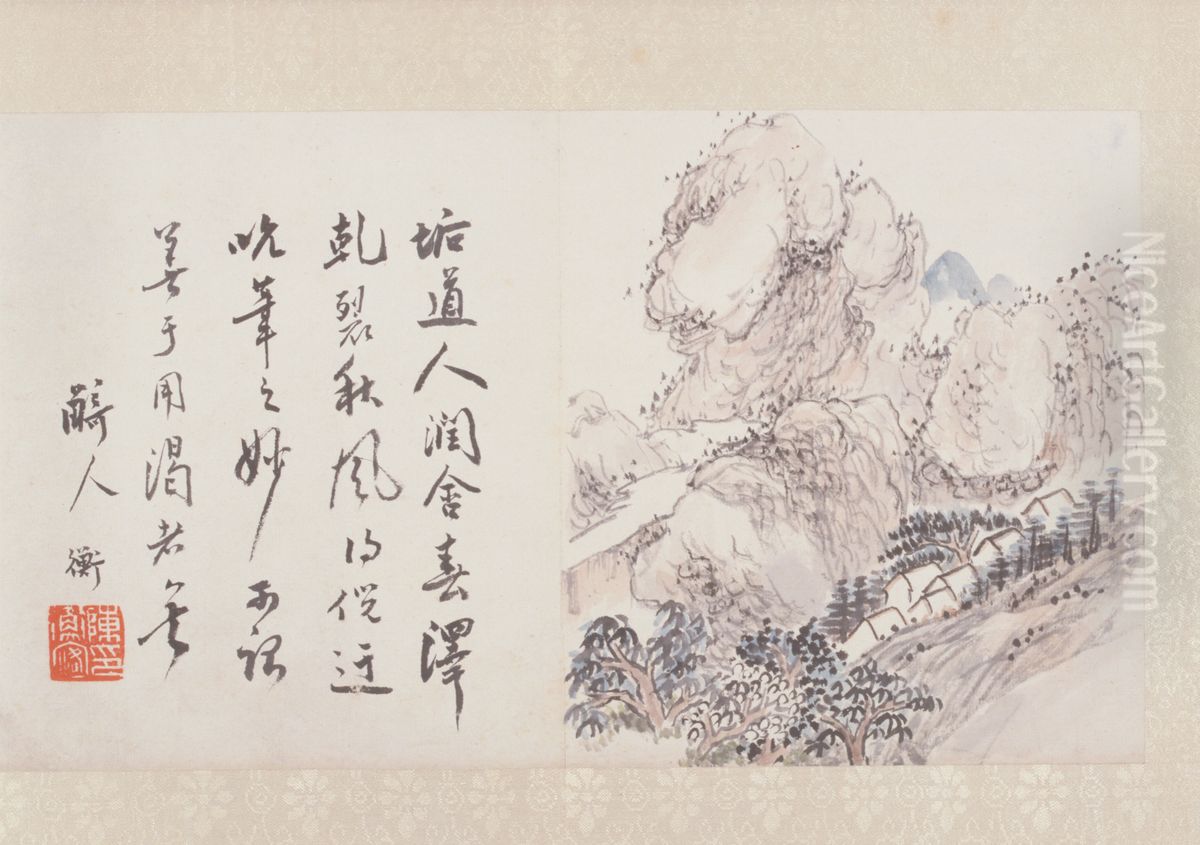 垢道人潤含春澤
乾裂秋風得倪迂
吮筆之妙可謂
善于用渴者矣
人 衡
NiceArtGallery.com